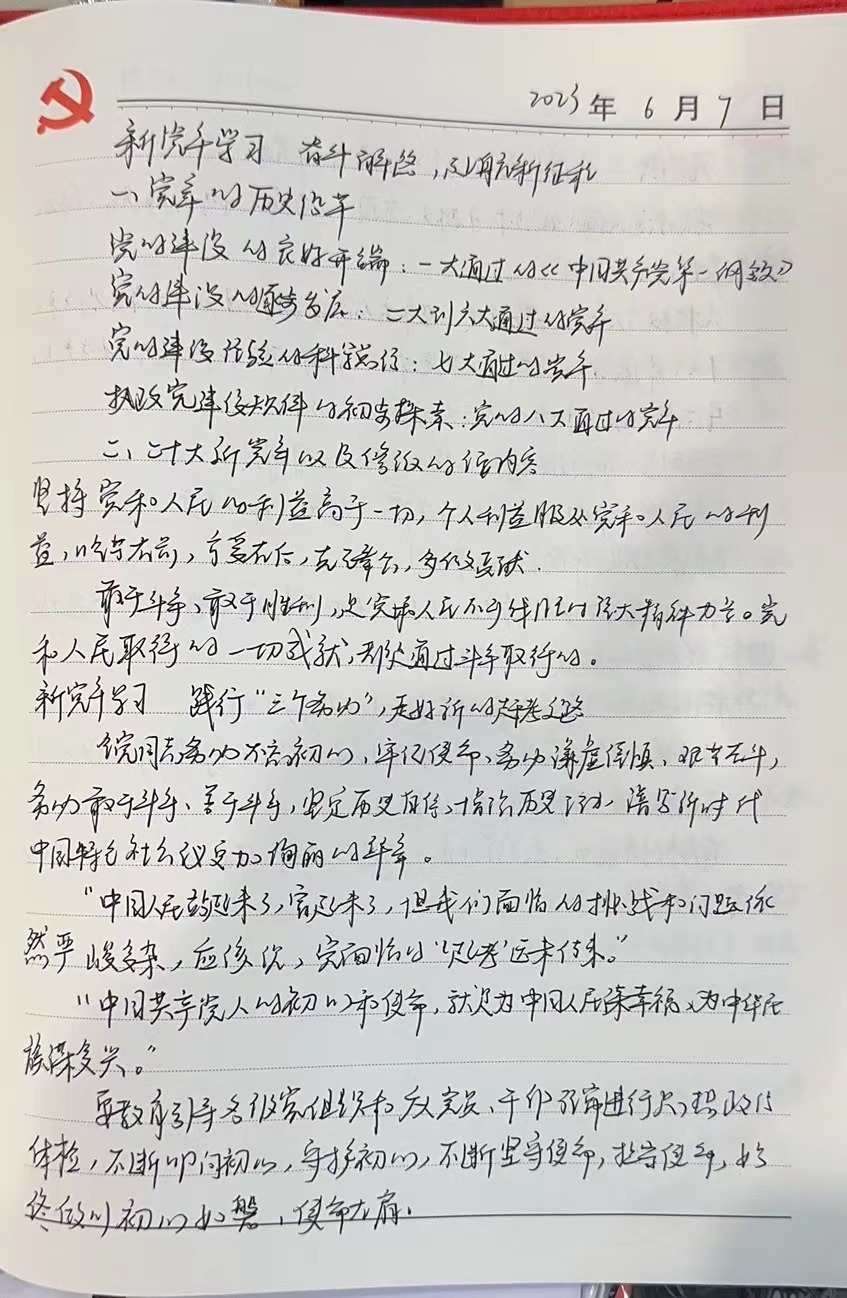 2023年6月7日
新党章学习 奋斗 新征程
一、党章的历史沿革
党的建设的良好开端：一大通过的《中国共产党第一纲领》
党的建设的逐步发展：二大到六大通过的党章
党的建设经验的科学总结：七大通过的党章
执政党建设规律的初步探索：党的八大通过的党章
二、二十大新党章以及修改的内容
坚持党和人民的利益高于一切，个人利益服从党和人民的利
益，吃苦在前，享受在后，克己奉公，多做贡献.
敢于斗争、敢于胜利，是党和人民不可战胜的强大精神力量。党
和人民取得的一切成就，都是通过斗争取得的。
新党章学习 践行“三个务必”，走好新的赶考之路
全党同志务必不忘初心、牢记使命、务必谦虚谨慎、艰苦奋斗，
务必敢于斗争、善于斗争，坚定历史自信，增强历史主动，谱写新时代
中国特色社会主义更加绚丽的华章。
“中国人民站起来了，富起来了，但我们面临的挑战和问题依
然严峻复杂，应该说，党面临的‘赶考’远未结束。”
“中国共产党人的初心和使命，就是为中国人民谋幸福、为中华民
族谋复兴。”
要教育引导各级党组织和广大党员、干部经常进行思想政治
体检，不断叩问初心，守护初心，不断坚守使命，担当使命，始
终做到初心如磐，使命在肩.